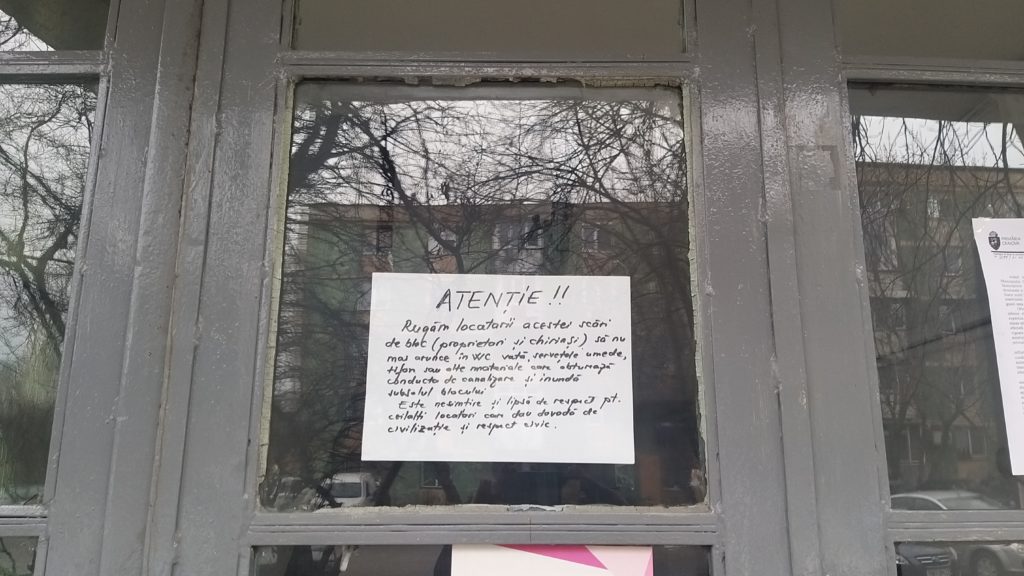 ATENȚIE!!
Rugăm locatarii acestei scări
de bloc (proprietari și chiriași) să nu
mai arunce în WC vată, servețele umede,
tifon sau alte materiale care obturează
conducta de canalizare și inundă
subsolul blocului
Este nesimțire și lipsă de respect pt.
ceilalți locatari care dau dovadă de
civilizație și respect civic.
PRIMĂRIA
CRAIOVA